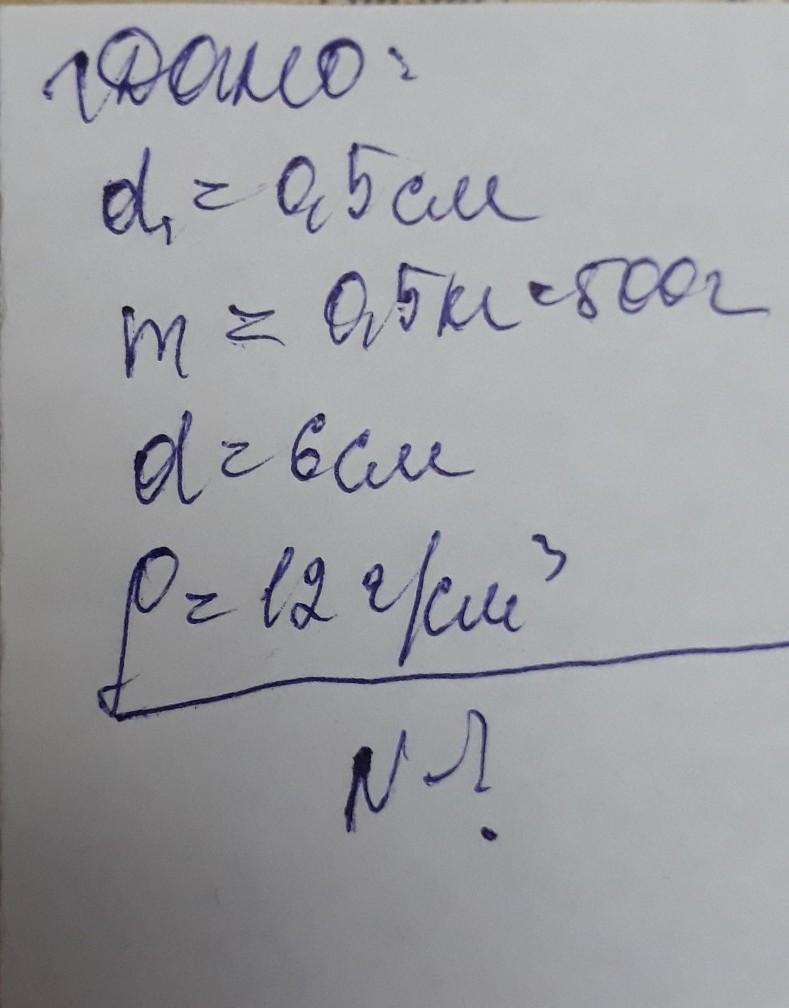 Дано:
d₁ = 0,5 см
m = 0,5 кг = 500 г
d = 6 см
ρ = 12 г/см³
N - ?